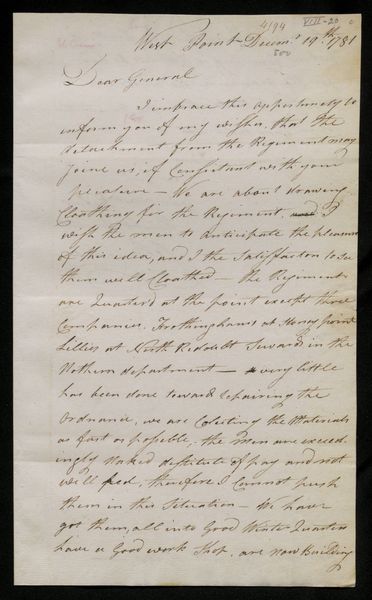 4194
VIII-20
500
West Point Decemr 19th 1781
Dear General
I imbrace this oppertunety to
inform you of my wishes, that the
detachment from the Regiment may
joine us, if Consistant with your
pleasure — We are about drawing
Cloathing for the Regiment, and I
wish the men to anticipate the pleasure
of this idea, and I the Satisfaction to See
them well Cloathed — the Regiment
are Quarterd at the point except three
Companies, Frothinghams at Stoney point
Lillies at North Redoubt Sewards in the
Nothern department — very little
has been done toward repairing the
Ordnance, we are Colecting the Materials
as fast as possible, the Men are exceed-
ingly Naked destitute of pay and not
well fed, therefore I Cannot push
them in this Situation — We have
got them all into Good Winter Quarters
have a Good work Shop, are now Building